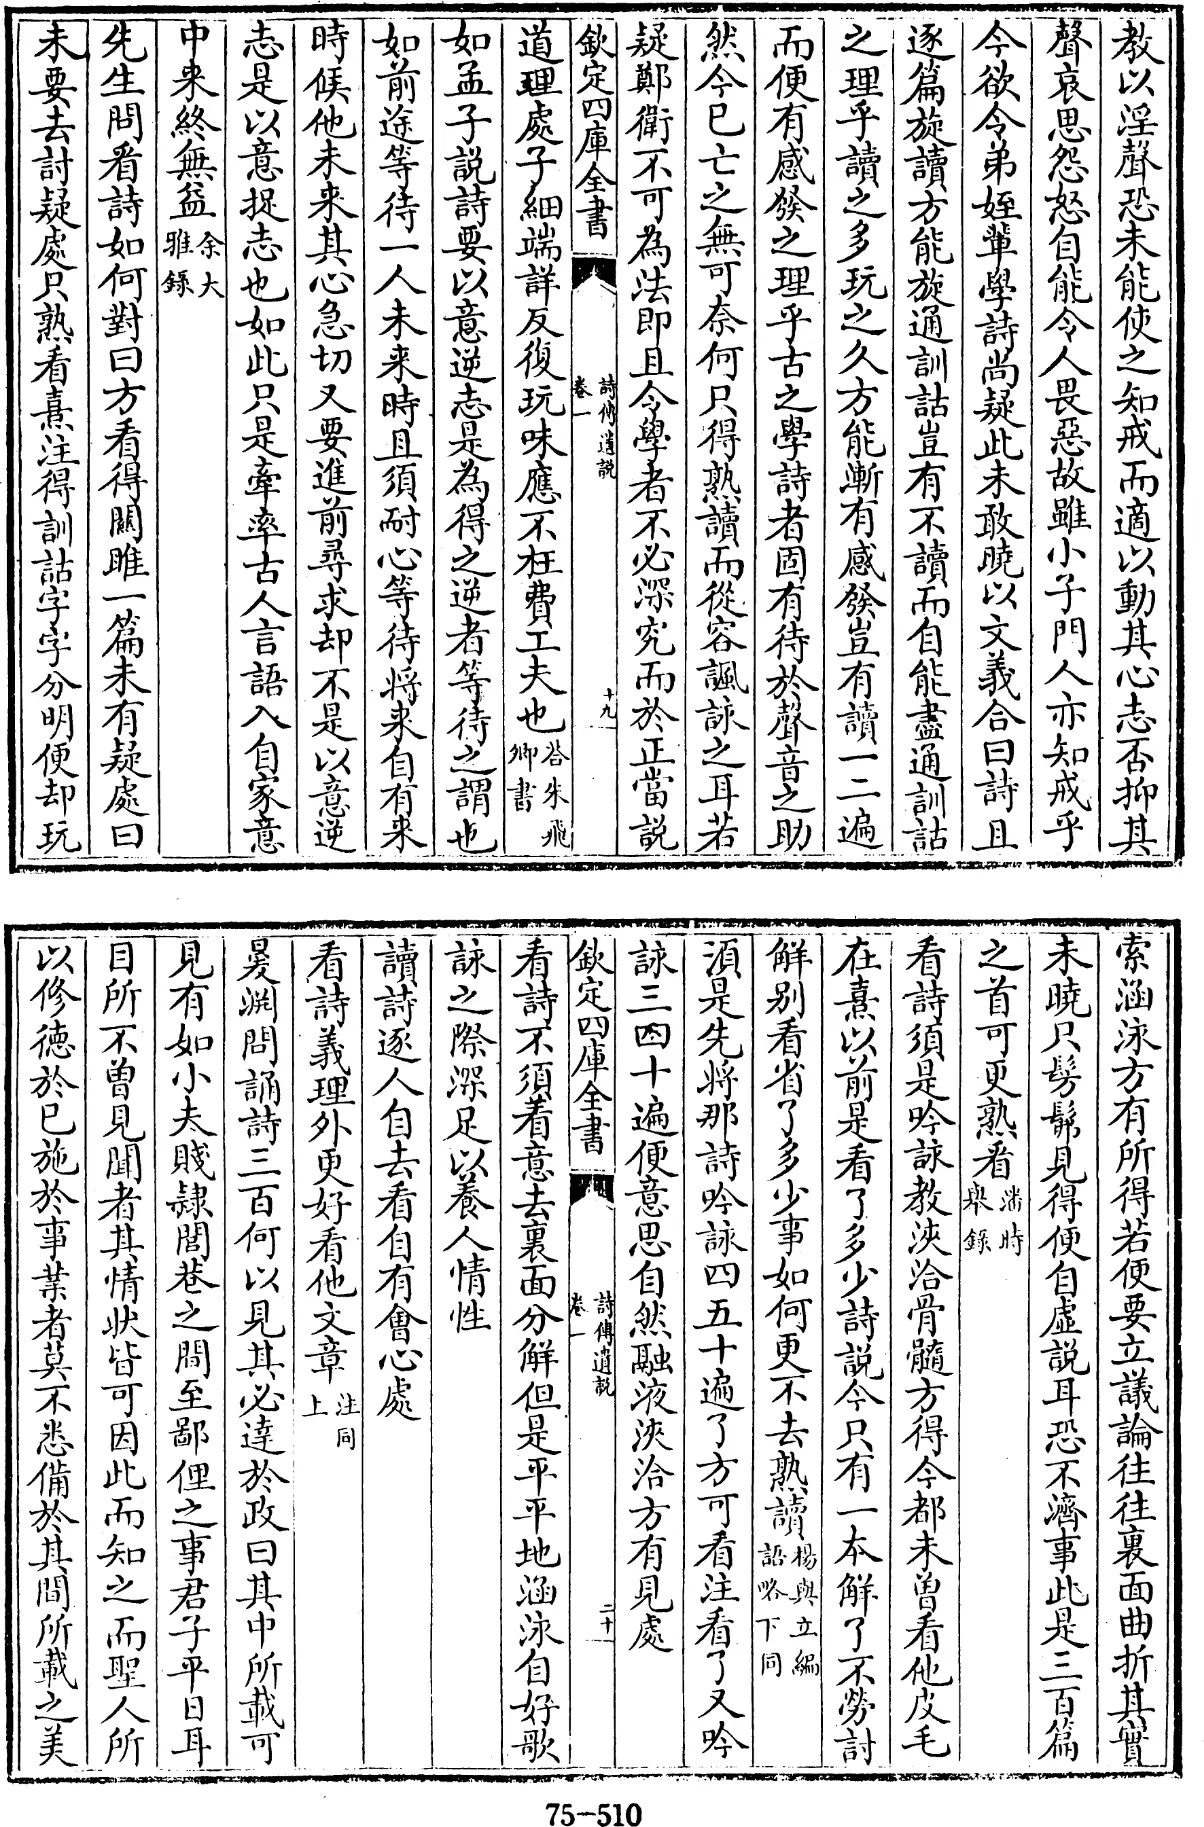 教以淫聲恐未能使之知戒而適以動其心志否抑其
聲哀思怨怒自能令人畏惡故雖小子門人亦知戒乎
今欲令弟姪輩學詩尚疑此未敢曉以文義合曰詩且
逐篇旋讀方能旋通訓詁豈有不讀而自能盡通訓詁
之理乎讀之多玩之久方能漸有感發豈有讀一二遍
而便有感發之理乎古之學詩者固有待於聲音之助
然今已亡之無可奈何只得熟讀而從容諷詠之耳若
疑鄭衛不可為法即且令學者不必深究而於正當說
欽定四庫全書
詩傳遺說
卷一
十九
道理處子細端詳反復玩味應不枉費工夫也
答朱飛
卿書
如孟子説詩要以意逆志是為得之逆者等待之謂也
如前途等待一人未来時且須耐心等待將来自有来
時候他未来其心急切又要進前尋求却不是以意逆
志是以意捉志也如此只是牽率古人言語入自家意
中来終無益
余大
雅錄
先生問看詩如何對曰方看得關雎一篇未有疑處曰
未要去討疑處只熟看熹注得訓詁字字分明便却玩
索涵泳方有所得若便要立議論往往裏面曲折其實
未曉只髣髴見得便自虛説耳恐不濟事此是三百篇
之首可更熟看
潘時
舉錄
看詩須是吟詠教浹洽骨髓方得今都未曾看他皮毛
在熹以前是看了多少詩説今只有一本解了不勞討
解别看省了多少事如何更不去熟讀
楊與立編
語略下同
須是先將那詩吟詠四五十遍了方可看注看了又吟
詠三四十遍便意思自然融液浹洽方有見處
欽定四庫全書
詩傳遺說
卷一
二十
看詩不須着意去裏面分解但是平平地涵泳自好歌
詠之際深足以養人情性
讀詩逐人自去看自有會心處
看詩義理外更好看他文章
注同
上
㬊淵問誦詩三百何以見其必達於政曰其中所載可
見有如小夫賤隸閭巷之間至鄙俚之事君子平日耳
目所不曾見聞者其情狀皆可因此而知之而聖人所
以修德於已施於事業者莫不悉備於其間所載之美
75-510